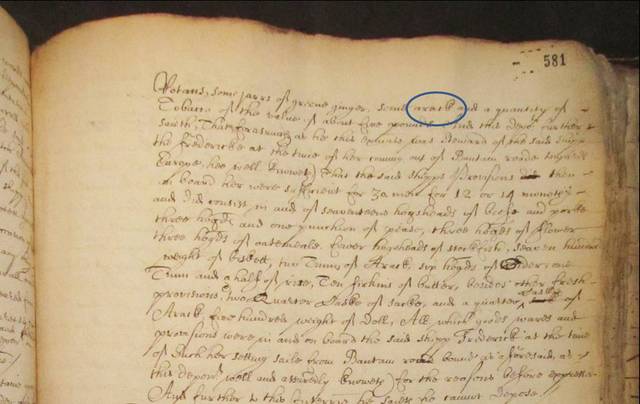 581
Potatis, some jarrs of greene ginger, some arack and a quantity of
Tobacco of the value of about five pounds And this depo.t further
saith, That forasmuch as hee this deponent was Steward of the said shipp
the Frederick at the time of her coming out of Bantam roade
Europe, hee well knoweth That the said shipps provisions then
on board her were sufficient for 30 men for 12 or 14 moneths
and did consist in and of seaventeene hogsheads of beefe and porke
three hogds and one punchion of pease, three hogds of flower
three hogds of oatemeale, fower hogsheads of stockfish, seaven hundred
weight of biskett, two Tunns of Arack, six hogds of one
Tunn and a half of rice, Ten firkins of butter, besides other fresh
provisions, two Quarter Caske of sacke, and a quarter caske of
Arack, five hundred weight of Doll, All which goods wares and
provisions were in and on board the said shipp Frederick at the time
of such her setting saile from Bantam road bound as aforesaid, as
this depon.t well and assuredly knoweth for the reasons before
And further to this hee saith hee cannot depose